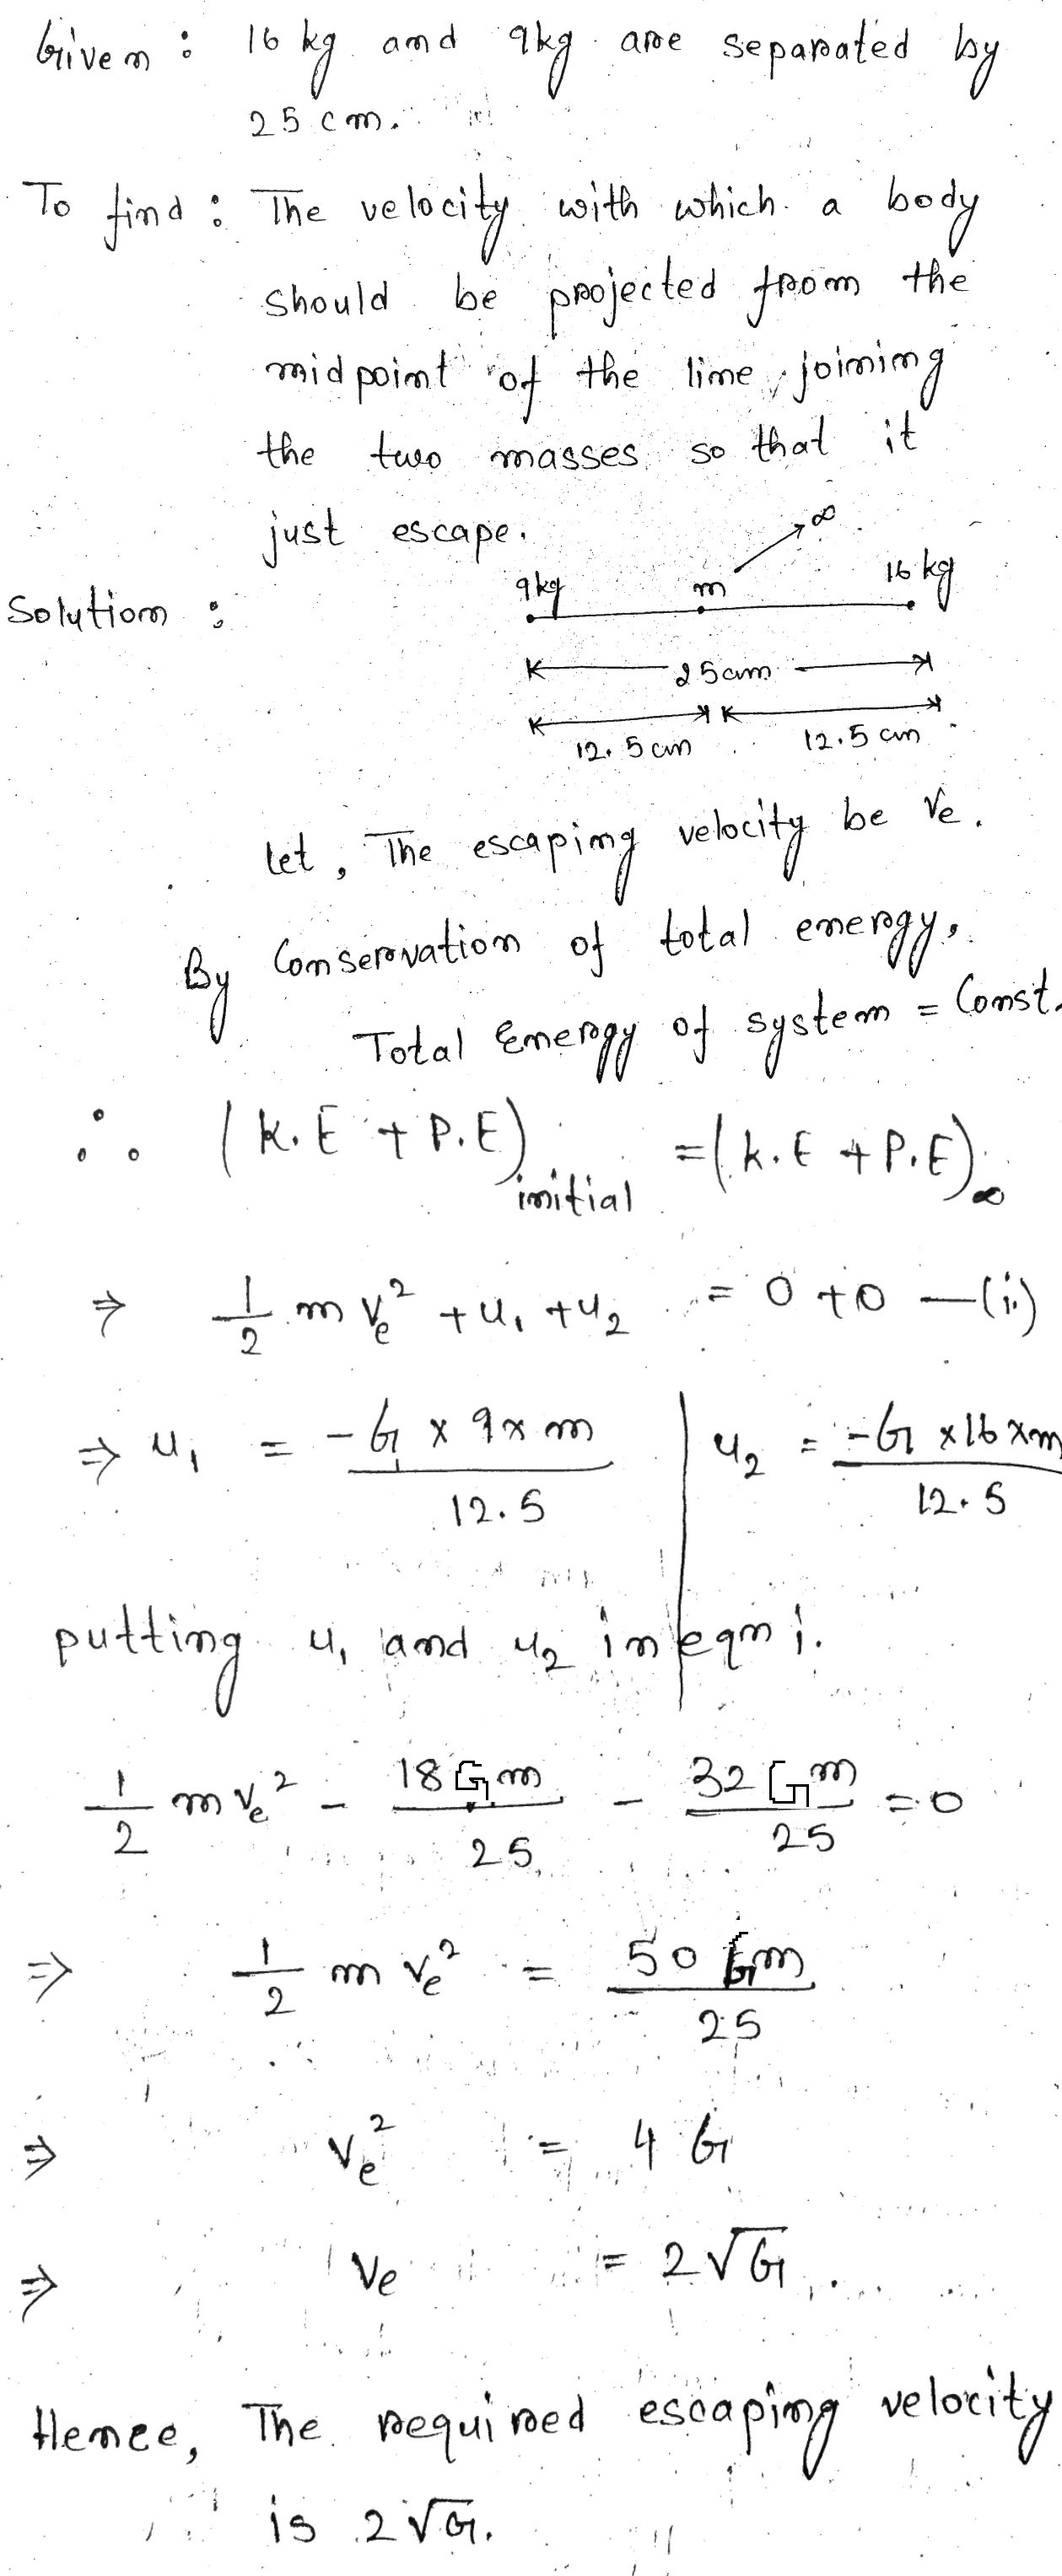 Given : 16 kg and 9kg are separated by
25 cm.
To find : The velocity with which a body
should be projected from the
midpoint of the line joining
the two masses so that it
just escape.
∞
9kg m 16 kg
Solution :
25cm
12.5 cm 12.5 cm
let, The escaping velocity be Ve.
By Conservation of total energy,
Total Energy of system = Const.
∴ (K.E + P.E)initial = (K.E + P.E)∞
⇒ 1/2 m Ve² + U₁ + U₂ = 0 + 0 —(i)
⇒ U₁ = -G × 9 × m / 12.5 | U₂ = -G × 16 × m / 12.5
putting U₁ and U₂ in eqn i.
1/2 m Ve² - 18 G m / 25 - 32 G m / 25 = 0
⇒ 1/2 m Ve² = 50 G m / 25
⇒ Ve² = 4 G
⇒ Ve = 2√G
Hence, The required escaping velocity
is 2√G.